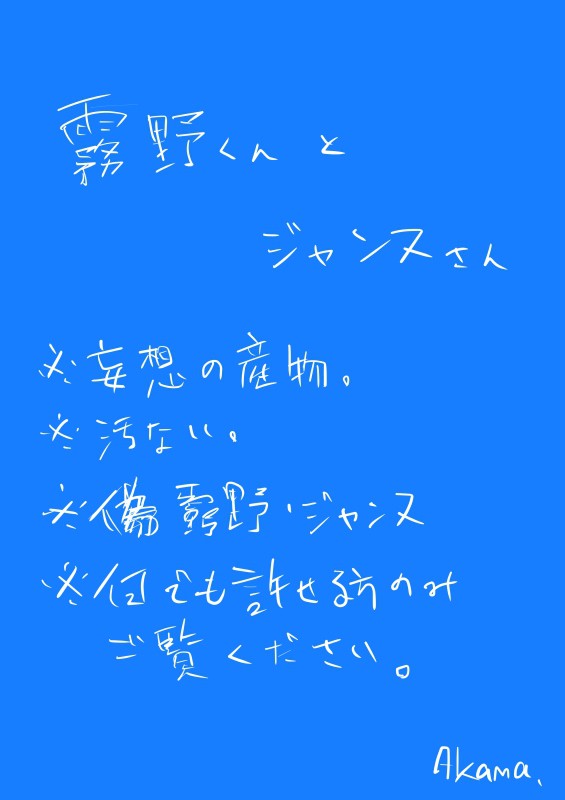 霧野くんと
ジャンヌさん
※妄想の産物。
※汚ない。
※偽霧野・ジャンヌ
※何でも許せる方のみ
ご覧ください。
Akama.